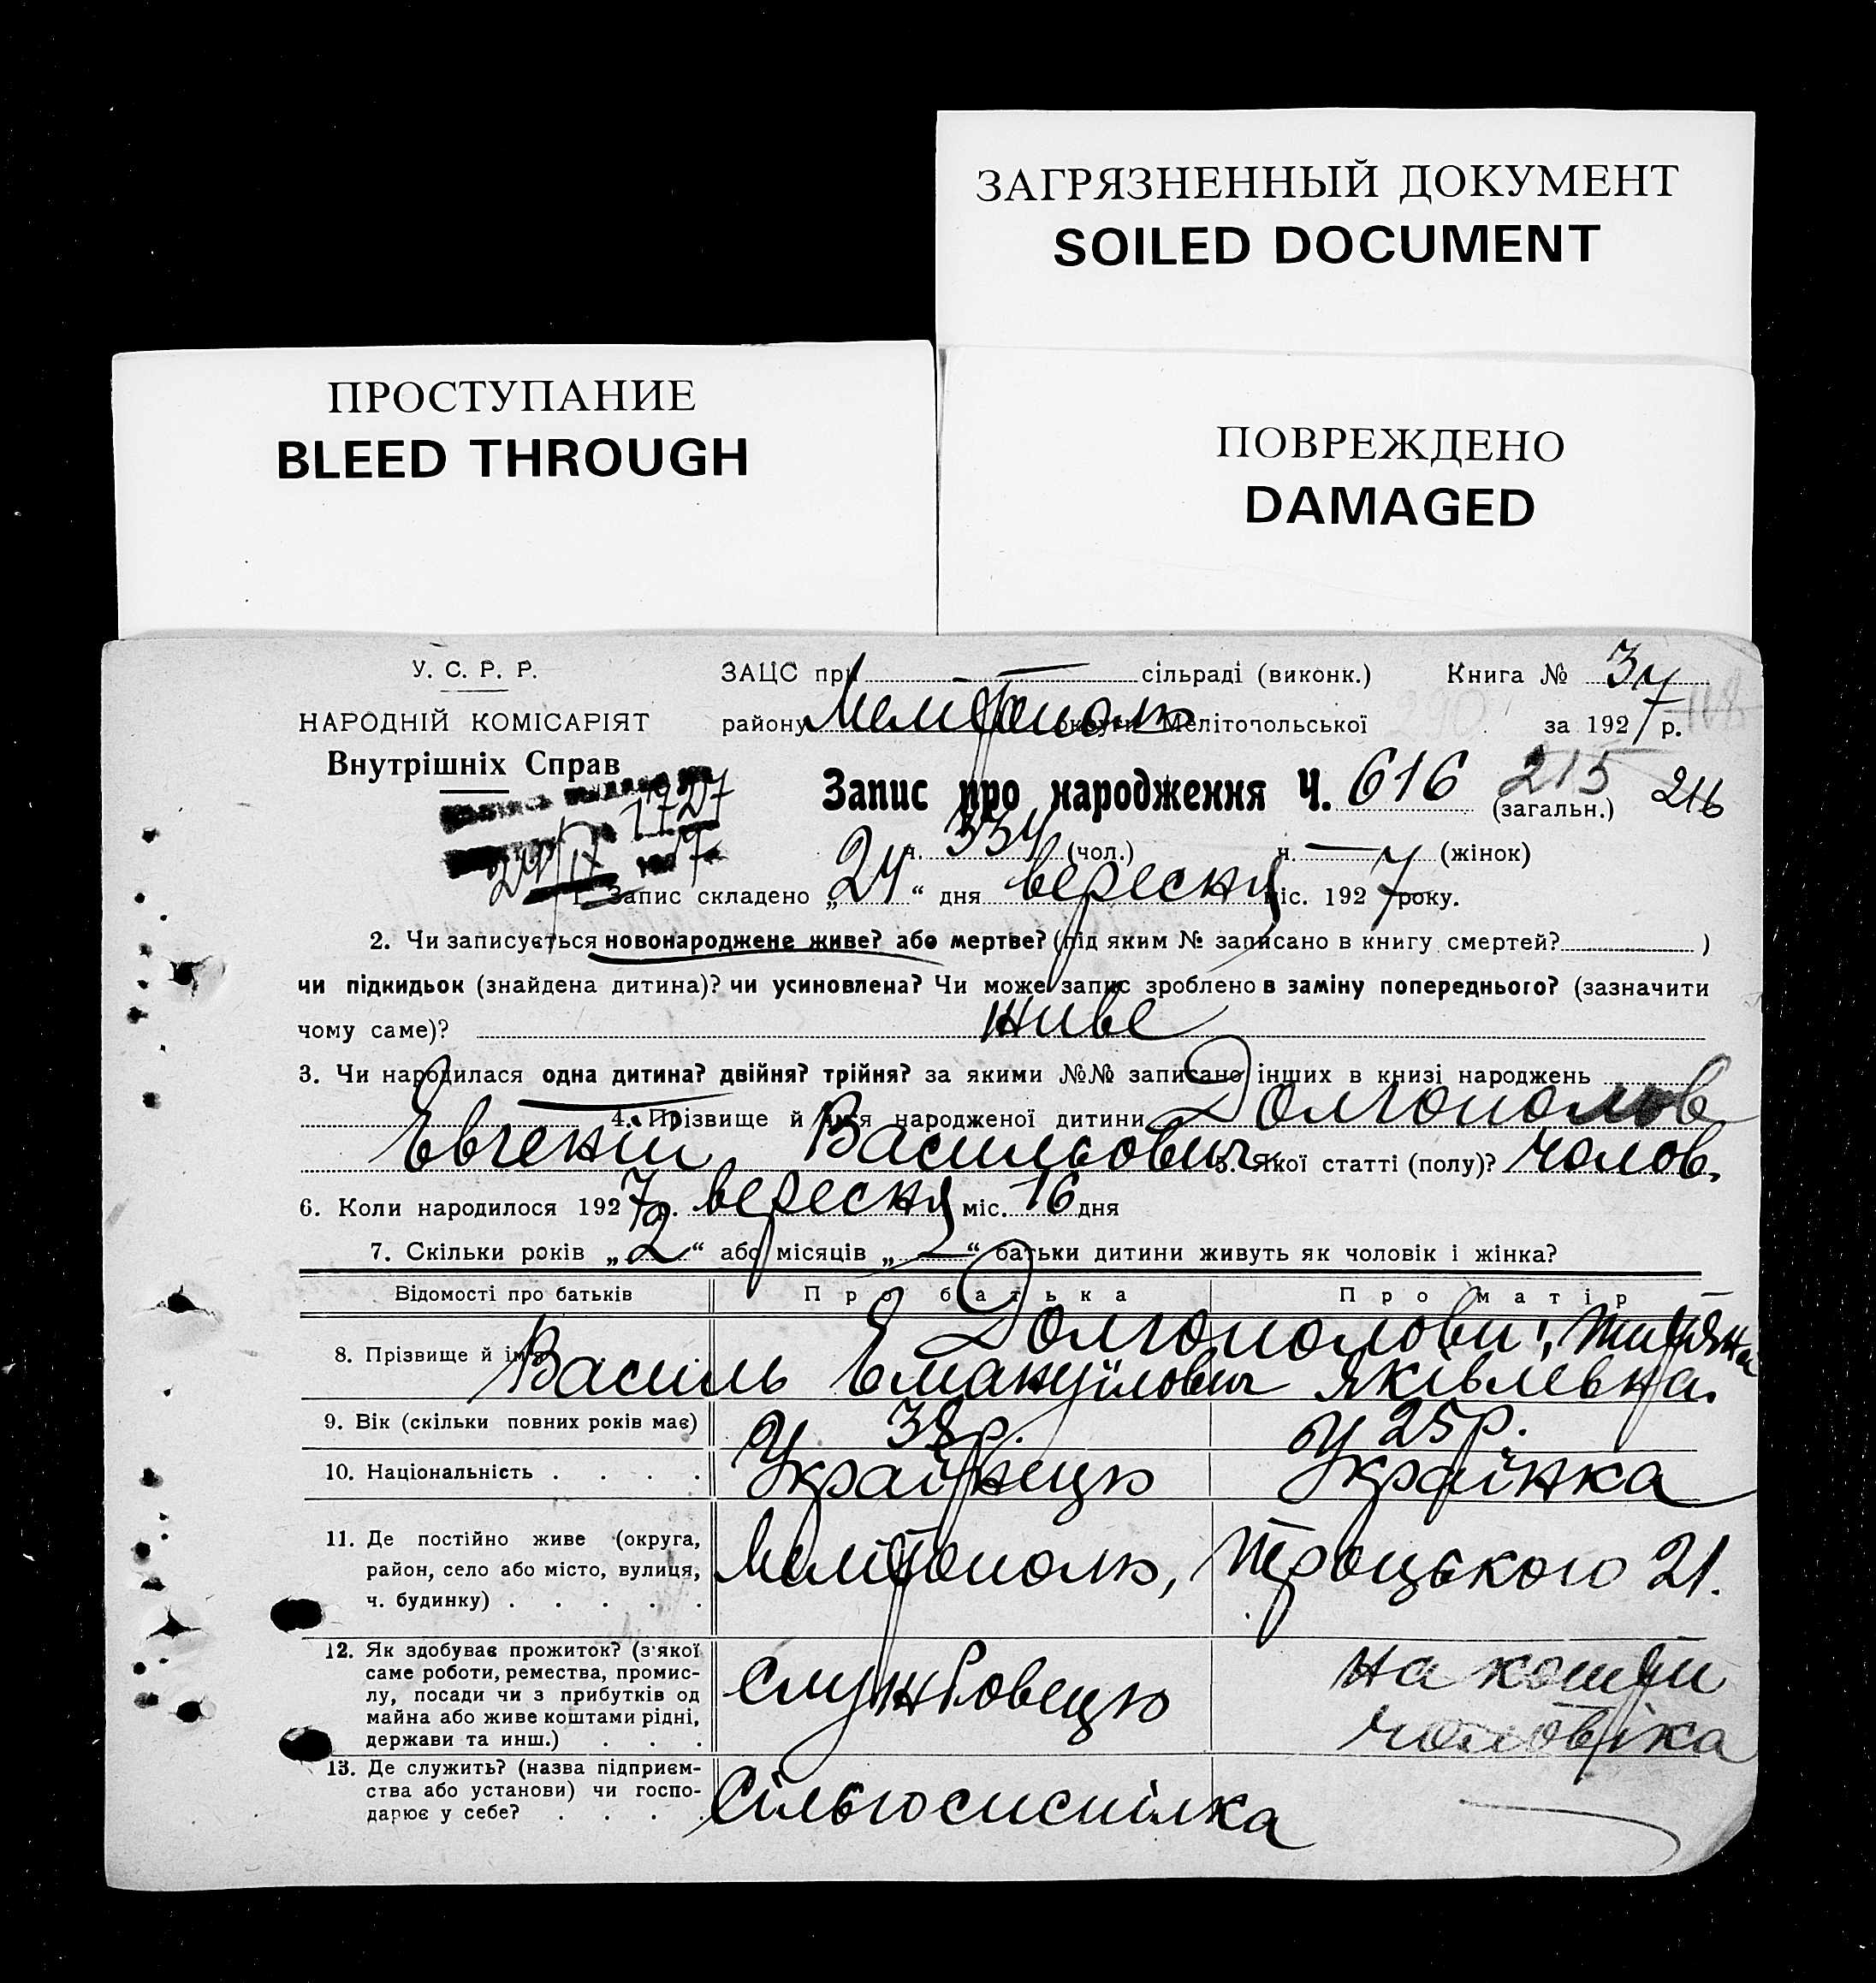 ЗАГРЯЗНЕННЫЙ ДОКУМЕНТ
SOILED DOCUMENT
ПРОСТУПАНИЕ
BLEED THROUGH
ПОВРЕЖДЕНО
DAMAGED
У. С. Р. Р. ЗАЦС при — сільраді (виконк.) Книга № 34
НАРОДНІЙ КОМІСАРІЯТ району Мелітополь округи Мелітопольської за 1927 р.
Внутрішніх Справ
Запис про народження Ч. 616 215 (загальн.) 216
ч. 334 (чол.) ч. — (жінок)
1. Запис складено „24“ дня вересня міс. 1927 року.
2. Чи записується новонароджене живе? або мертве? (під яким № записано в книгу смертей? )
чи підкидьок (знайдена дитина)? чи усиновлена? Чи може запис зроблено в заміну попереднього? (зазначити
чому саме)? живе
3. Чи народилася одна дитина? двійня? трійня? за якими №№ записано інших в книзі народжень
4. Прізвище й имя народженої дитини Долгополов
Евгеній Васильович 5. Якої статті (полу)? чолов.
6. Коли народилося 1927 р. вересня міс. 16 дня
7. Скільки років „2“ або місяців „—“ батьки дитини живуть як чоловік і жінка?
Відомості про батьків Про батька Про матір
8. Прізвище й ім'я Долгополови:
Василь Емануїлович Яківлевна.
9. Вік (скільки повних років має) 38 р. 25 р.
10. Національність . . . . Українець Українка
11. Де постійно живе (округа,
район, село або місто, вулиця,
ч. будинку) . . . . . Мелітополь, Троцького 21.
12. Як здобуває прожиток? (з'якої
саме роботи, ремества, промис-
лу, посади чи з прибутків од
майна або живе коштами рідні,
держави та инш.) . . . Службовець на кошти чоловіка
13. Де служить? (назва підприєм-
ства або установи) чи госпо-
дарює у себе? . . . .